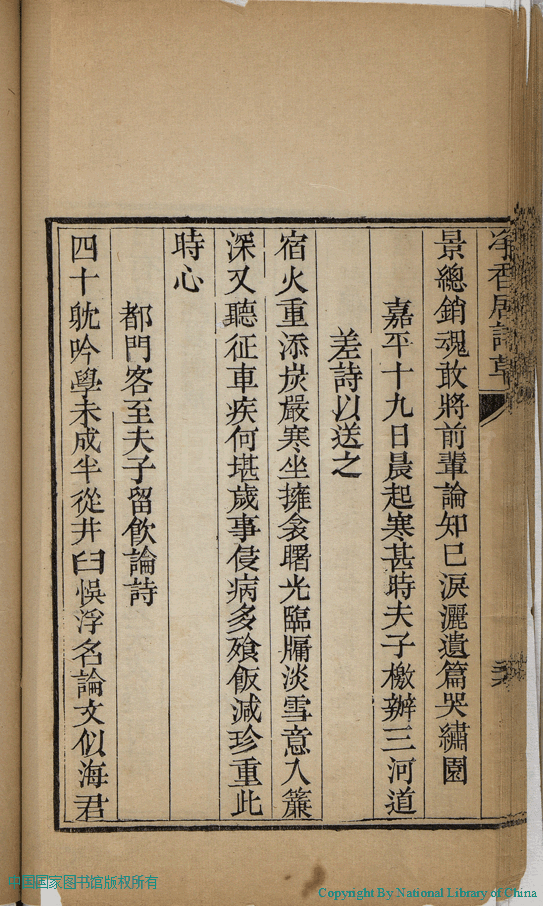 淨香居詩草
景總銷魂敢將前輩論知已淚灑遺篇哭繡園
嘉平十九日晨起寒甚時夫子檄辦三河道
差詩以送之
宿火重添炭嚴寒坐擁衾曙光臨牖淡雪意入簾
深又聽征車疾何堪歲事侵病多飱飯減珍重此
時心
都門客至夫子留飲論詩
四十耽吟學未成半從井臼悞浮名論文似海君
中国国家图书馆版权所有
Copyright By National Library of China